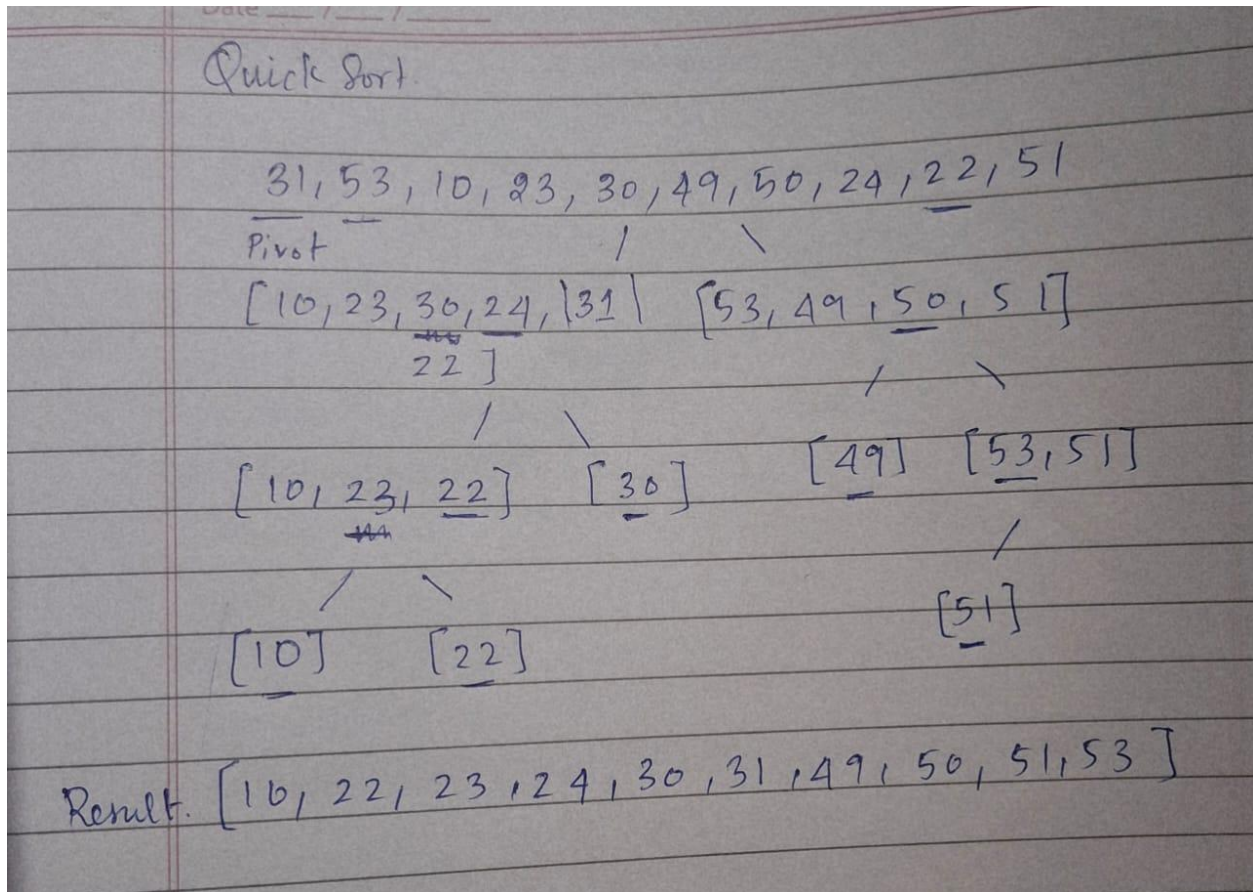 Date __/__/____
Quick Sort.
31, 53, 10, 23, 30, 49, 50, 24, 22, 51
Pivot
[10, 23, 30, 24, |31| [53, 49, 50, 51]
22]
[49] [53, 51]
[10, 23, 22] [30]
[51]
[10] [22]
Result. [10, 22, 23, 24, 30, 31, 49, 50, 51, 53]